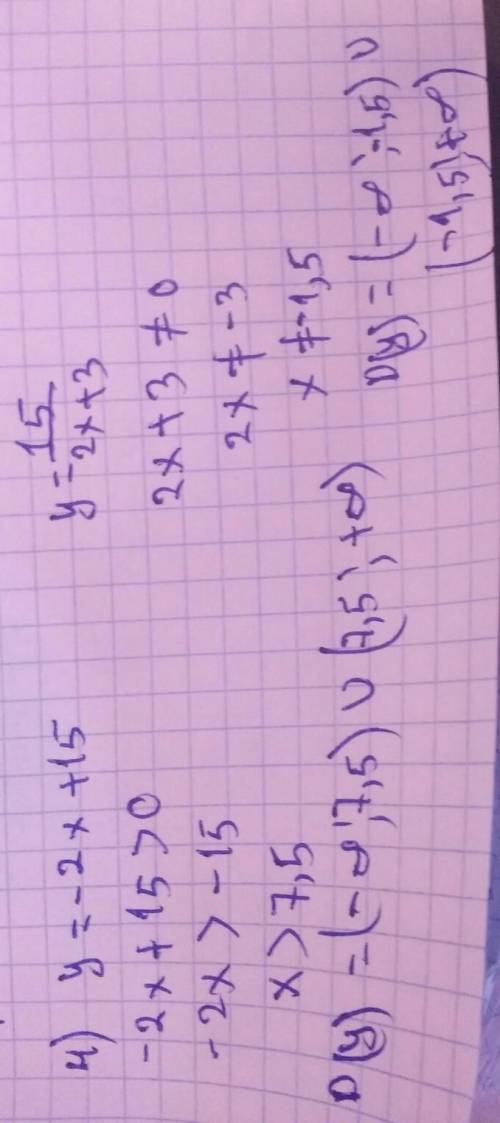 4) y = -2x +15
-2x + 15 > 0
-2x > -15
x > 7,5
D(y) = (-∞; 7,5) ∪ (7,5; +∞)
y = 15/2x+3
2x + 3 ≠ 0
2x ≠ -3
x ≠ -1,5
D(y) = (-∞; -1,5) ∪
(-1,5; +∞)